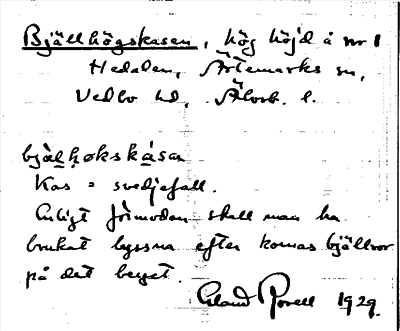 Bjällhögskasen, hög höjd å nr 1
Hedalen, Ärtemarks sn,
Vedbo hd, Älvsb. l.
bjälhøkskåsen
Kas = svedjefall.
Enligt förmodan skall man ha
brukat lyssna efter kornas bjällror
på det berget.
Erland Rosell 1929.